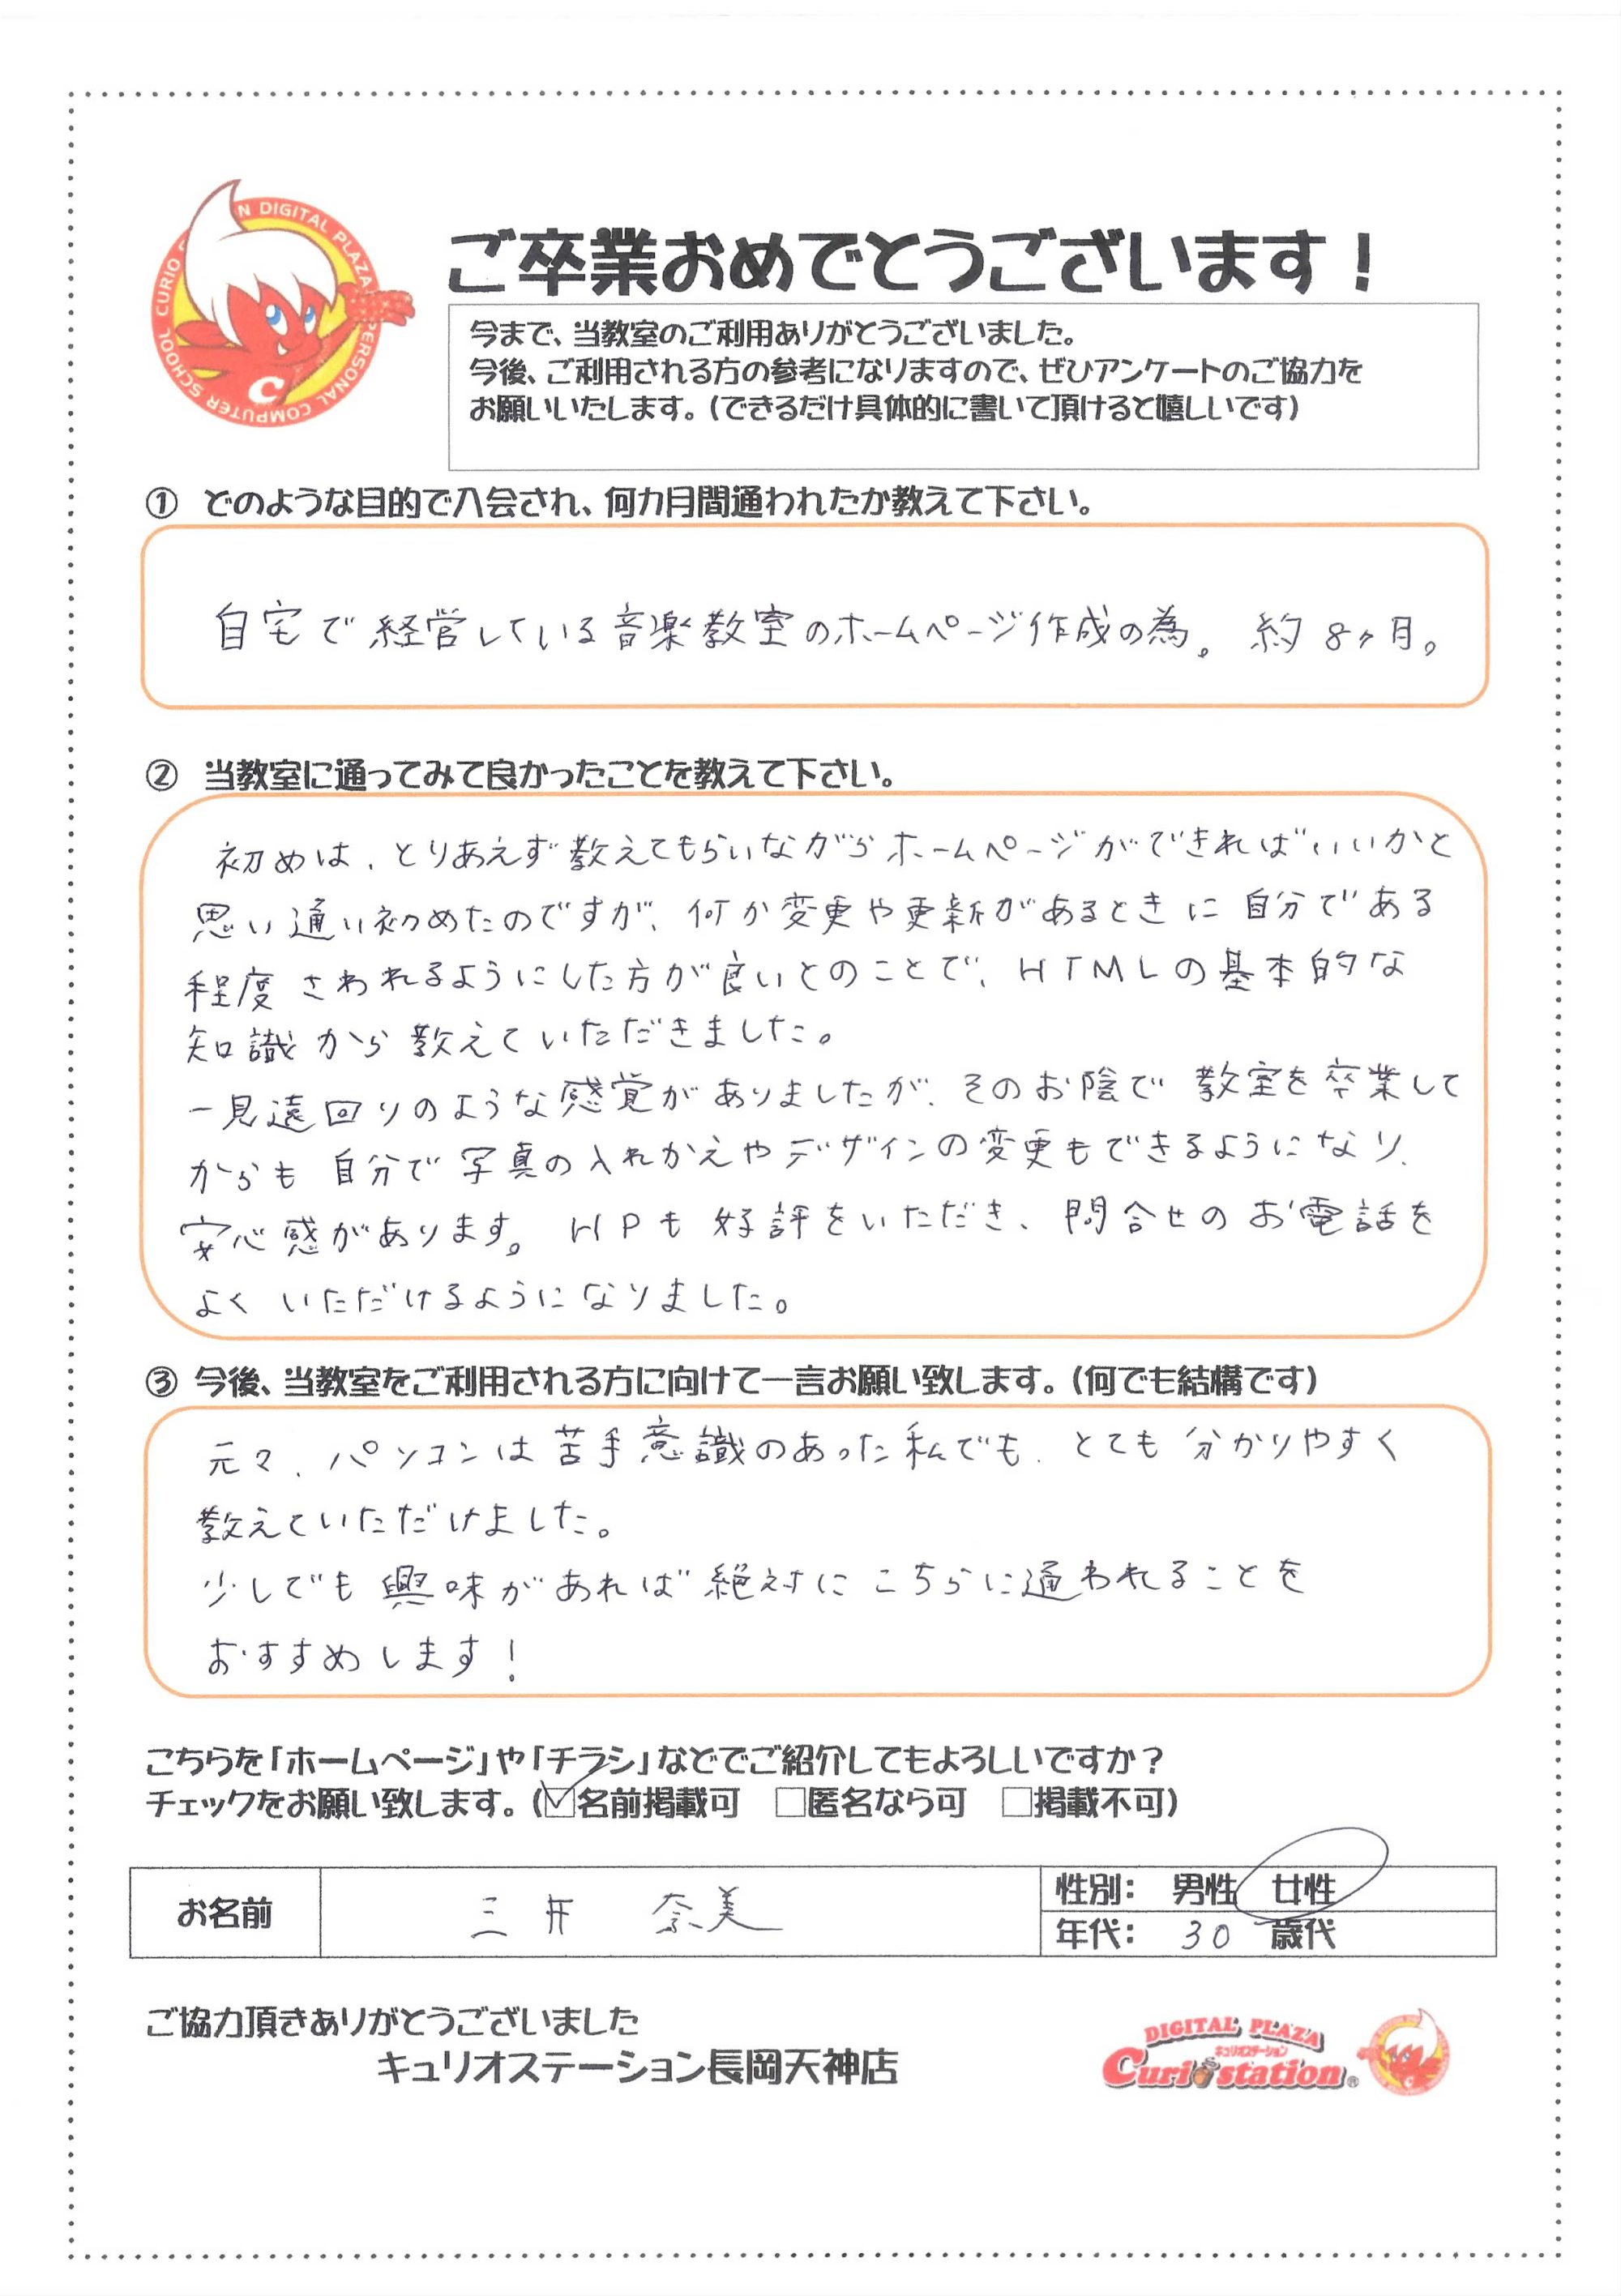 CURIO STATION DIGITAL PLAZA
PERSONAL COMPUTER SCHOOL
C
ご卒業おめでとうございます！
今まで、当教室のご利用ありがとうございました。
今後、ご利用される方の参考になりますので、ぜひアンケートのご協力を
お願いいたします。(できるだけ具体的に書いて頂けると嬉しいです)
① どのような目的で入会され、何カ月間通われたか教えて下さい。
自宅で経営している音楽教室のホームページ作成の為。約8ヶ月。
② 当教室に通ってみて良かったことを教えて下さい。
初めは、とりあえず教えてもらいながらホームページができればいいかと
思い通い初めたのですが、何か変更や更新があるときに自分である
程度さわれるようにした方が良いとのことで、HTMLの基本的な
知識から教えていただきました。
一見遠回りのような感覚がありましたが、そのお陰で教室を卒業して
からも自分で写真の入れかえやデザインの変更もできるようになり、
安心感があります。HPも好評をいただき、問合せのお電話を
よくいただけるようになりました。
③ 今後、当教室をご利用される方に向けて一言お願い致します。(何でも結構です)
元々、パソコンは苦手意識のあった私でも、とても分かりやすく
教えていただけました。
少しでも興味があれば絶対にこちらに通われることを
おすすめします！
こちらを「ホームページ」や「チラシ」などでご紹介してもよろしいですか？
チェックをお願い致します。(☑名前掲載可 □匿名なら可 □掲載不可)
お名前 三井 奈美 性別： 男性 女性
年代： 30 歳代
ご協力頂きありがとうございました
キュリオステーション長岡天神店
DIGITAL PLAZA
キュリオステーション
Curio station®